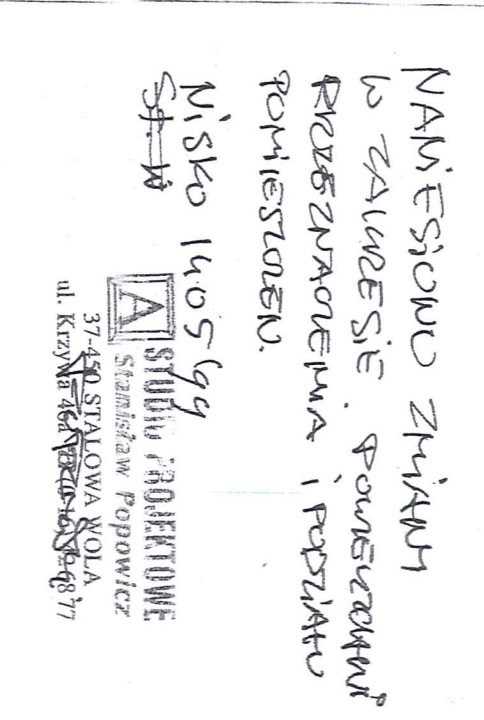 NANIESIONO ZMIANY
W ZAKRESIE POWIERZCHNI
PRZEZNACZENIA I PODZIAŁU
POMIESZCZEŃ.
Nisko 14.05.99
A STUDIO PROJEKTOWE
Stanisław Popowicz
37-450 STALOWA WOLA
ul. Krzywa 46a